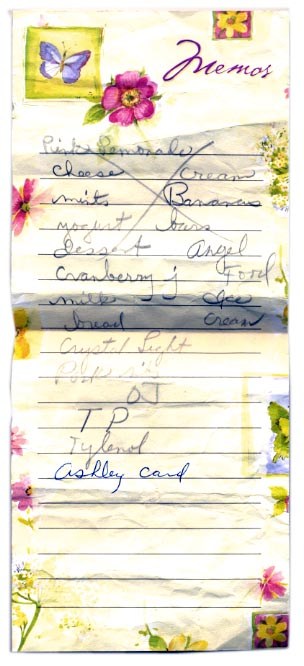 Memos
Pink Lemonade
Cheese Cream
mints Bananas
yogurt bars
Dessert Angel
Cranberry j Food
milk Ice
bread Cream
Crystal Light
Pork
OJ
TP
Tylenol
Ashley card